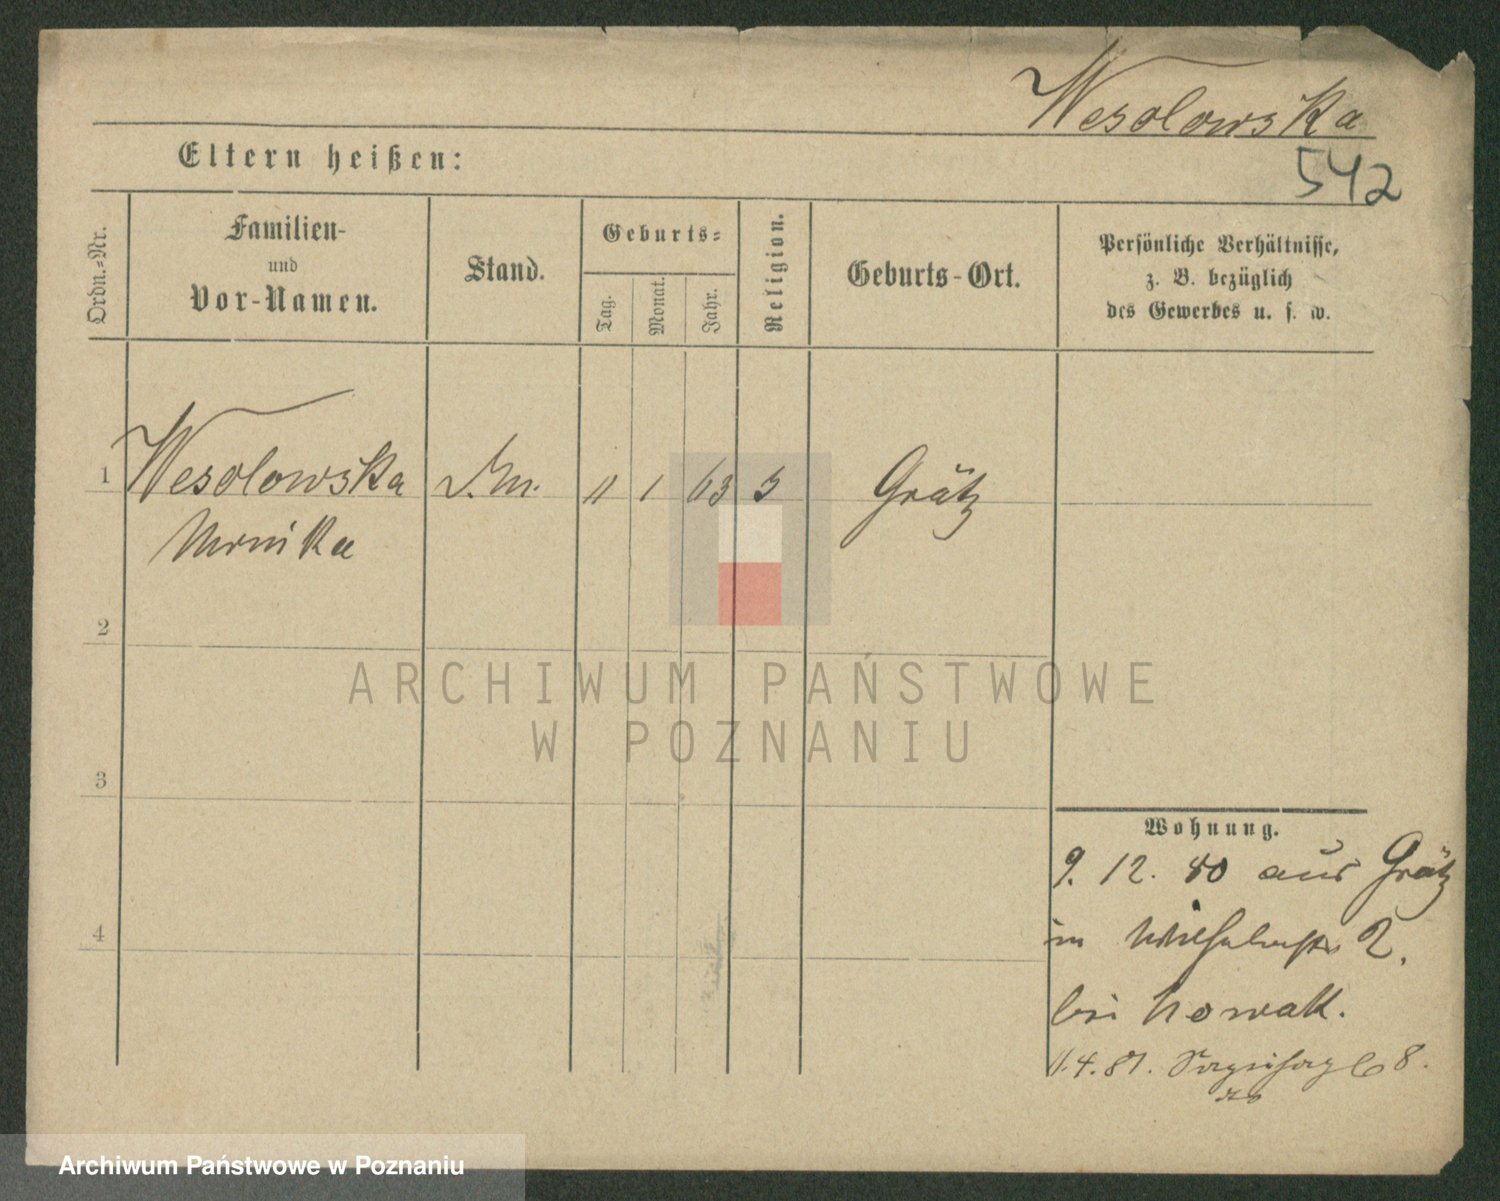 Wesolowska
542
Eltern heißen:
Ordn.=Nr.
Familien-
und
Vor-Namen.
Stand.
Geburts=
Tag.
Monat.
Jahr.
Religion.
Geburts-Ort.
Persönliche Verhältnisse,
z. B. bezüglich
des Gewerbes u. s. w.
1 Wesolowska 11 1 63 Grätz
Monika
2
ARCHIWUM PAŃSTWOWE
W POZNANIU
3
Wohnung.
9. 12. 80 aus Grätz
in Wilhelmstr 2.
4
bei Nowak.
11.4.81. 68.
Archiwum Państwowe w Poznaniu